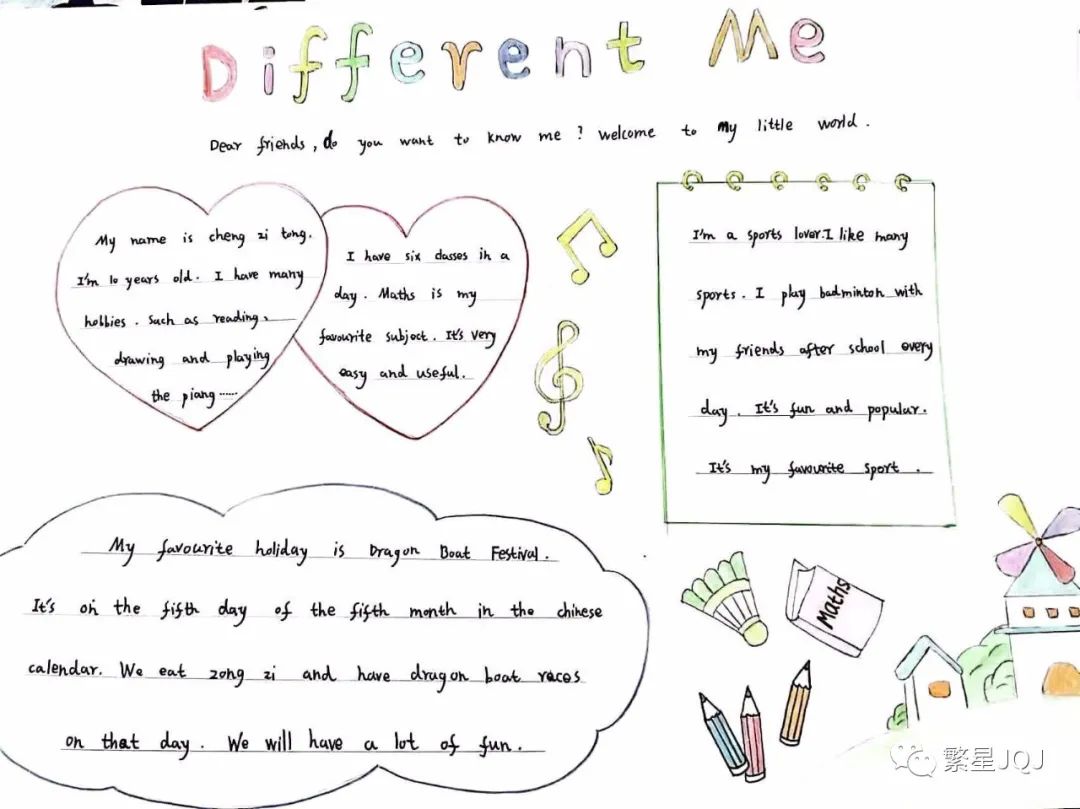 Different Me
Dear friends, do you want to know me? welcome to my little world.
My name is cheng zi tong.
I'm 10 years old. I have many
hobbies. Such as reading、
drawing and playing
the piang……
I have six classes in a
day. Maths is my
favourite subject. It's very
easy and useful.
I'm a sports lover.I like many
sports. I play badminton with
my friends after school every
day. It's fun and popular.
It's my favourite sport.
My favourite holiday is Dragon Boat Festival.
It's on the fifth day of the fifth month in the chinese
calendar. We eat zong zi and have dragon boat races
on that day. We will have a lot of fun.
Maths
繁星JQJ